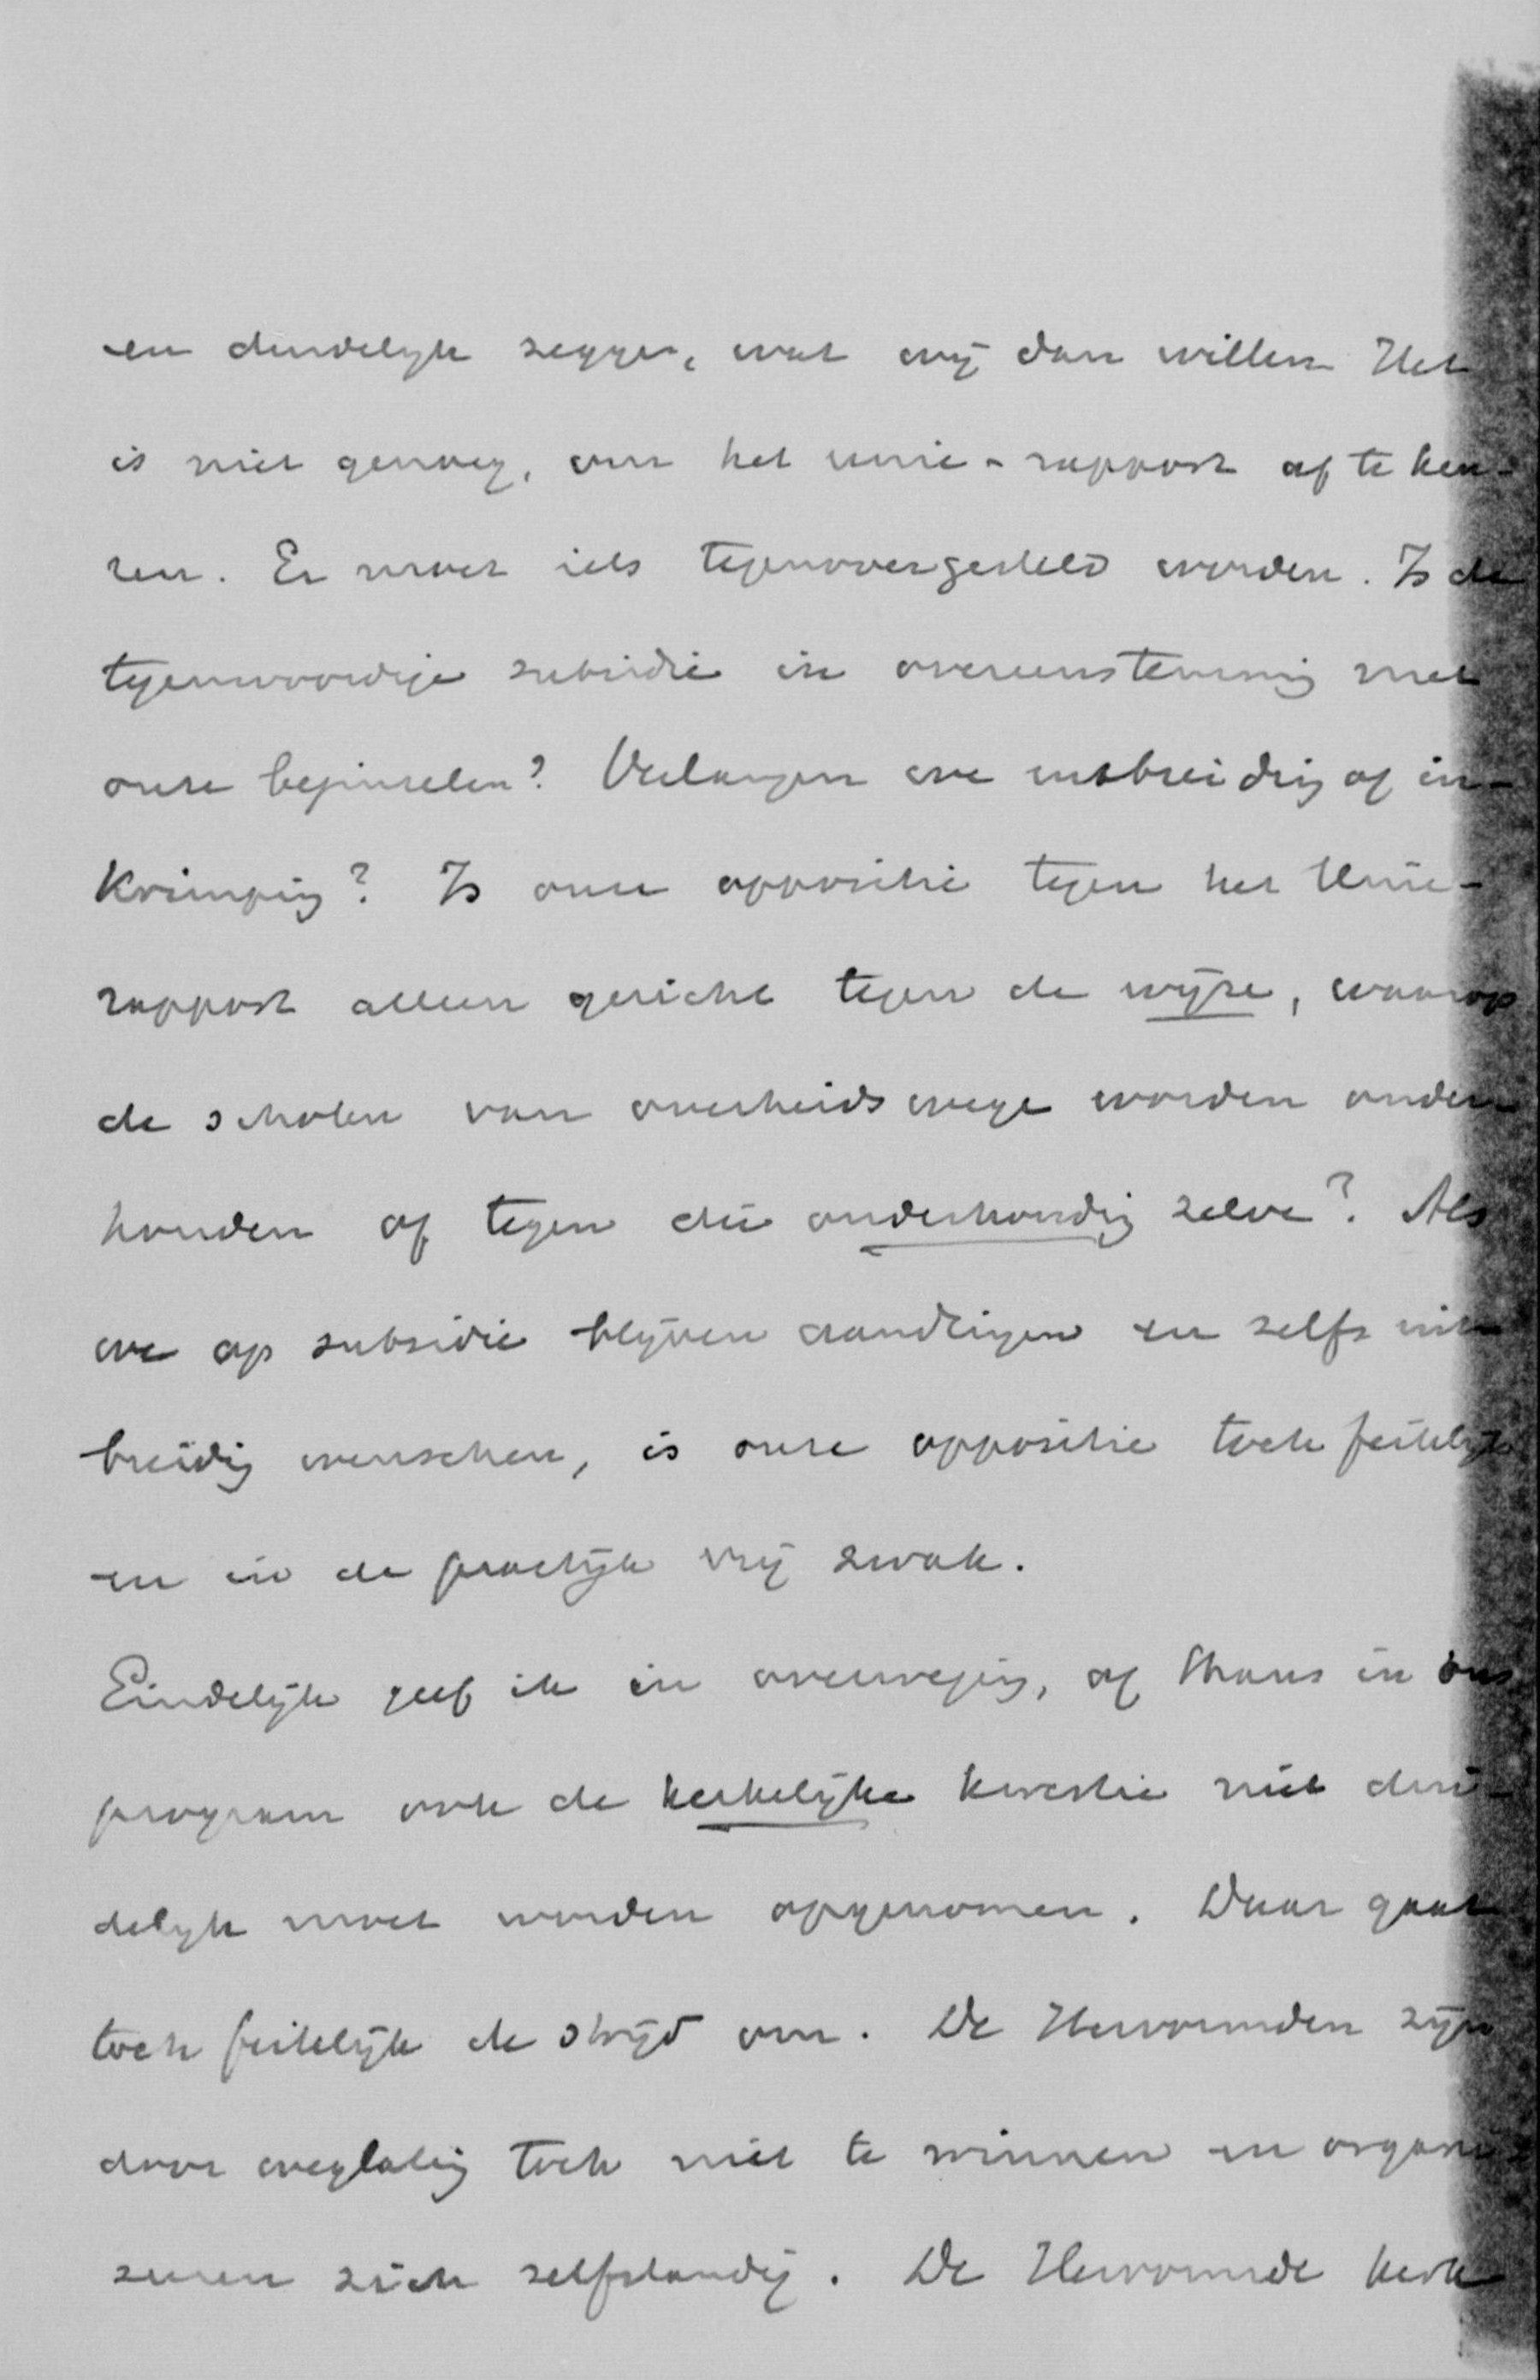 en duidelijk zeggen, wat wij dan willen Het
is niet genoeg, om het unie-rapport af te keu-
ren. Er moet iets tegenovergesteld worden. Is de
tegenwoordige subsidie in overeenstemming met
onze beginselen? Verlangen we uitbreiding of in-
krimping? Is onze oppositie tegen het Unie-
rapport alleen gericht tegen de wijze, waarop
de scholen van overheidswege worden onder
houden of tegen die onderhouding zelve? Als
we op subsidie blijven aandringen en zelfs uit
breiding wenschen, is onze oppositie toch feitelijk
en in de practijk vrij zwak.
Eindelijk geef ik in overweging, of thans in ons
program ook de kerkelijke kwestie niet dui-
delijk moet worden opgenomen. Daar gaat
toch feitelijk de strijd om. De Hervormden zijn
door weglating toch niet te winnen en organi-
seeren zich zelfstandig. De Hervormde kerk